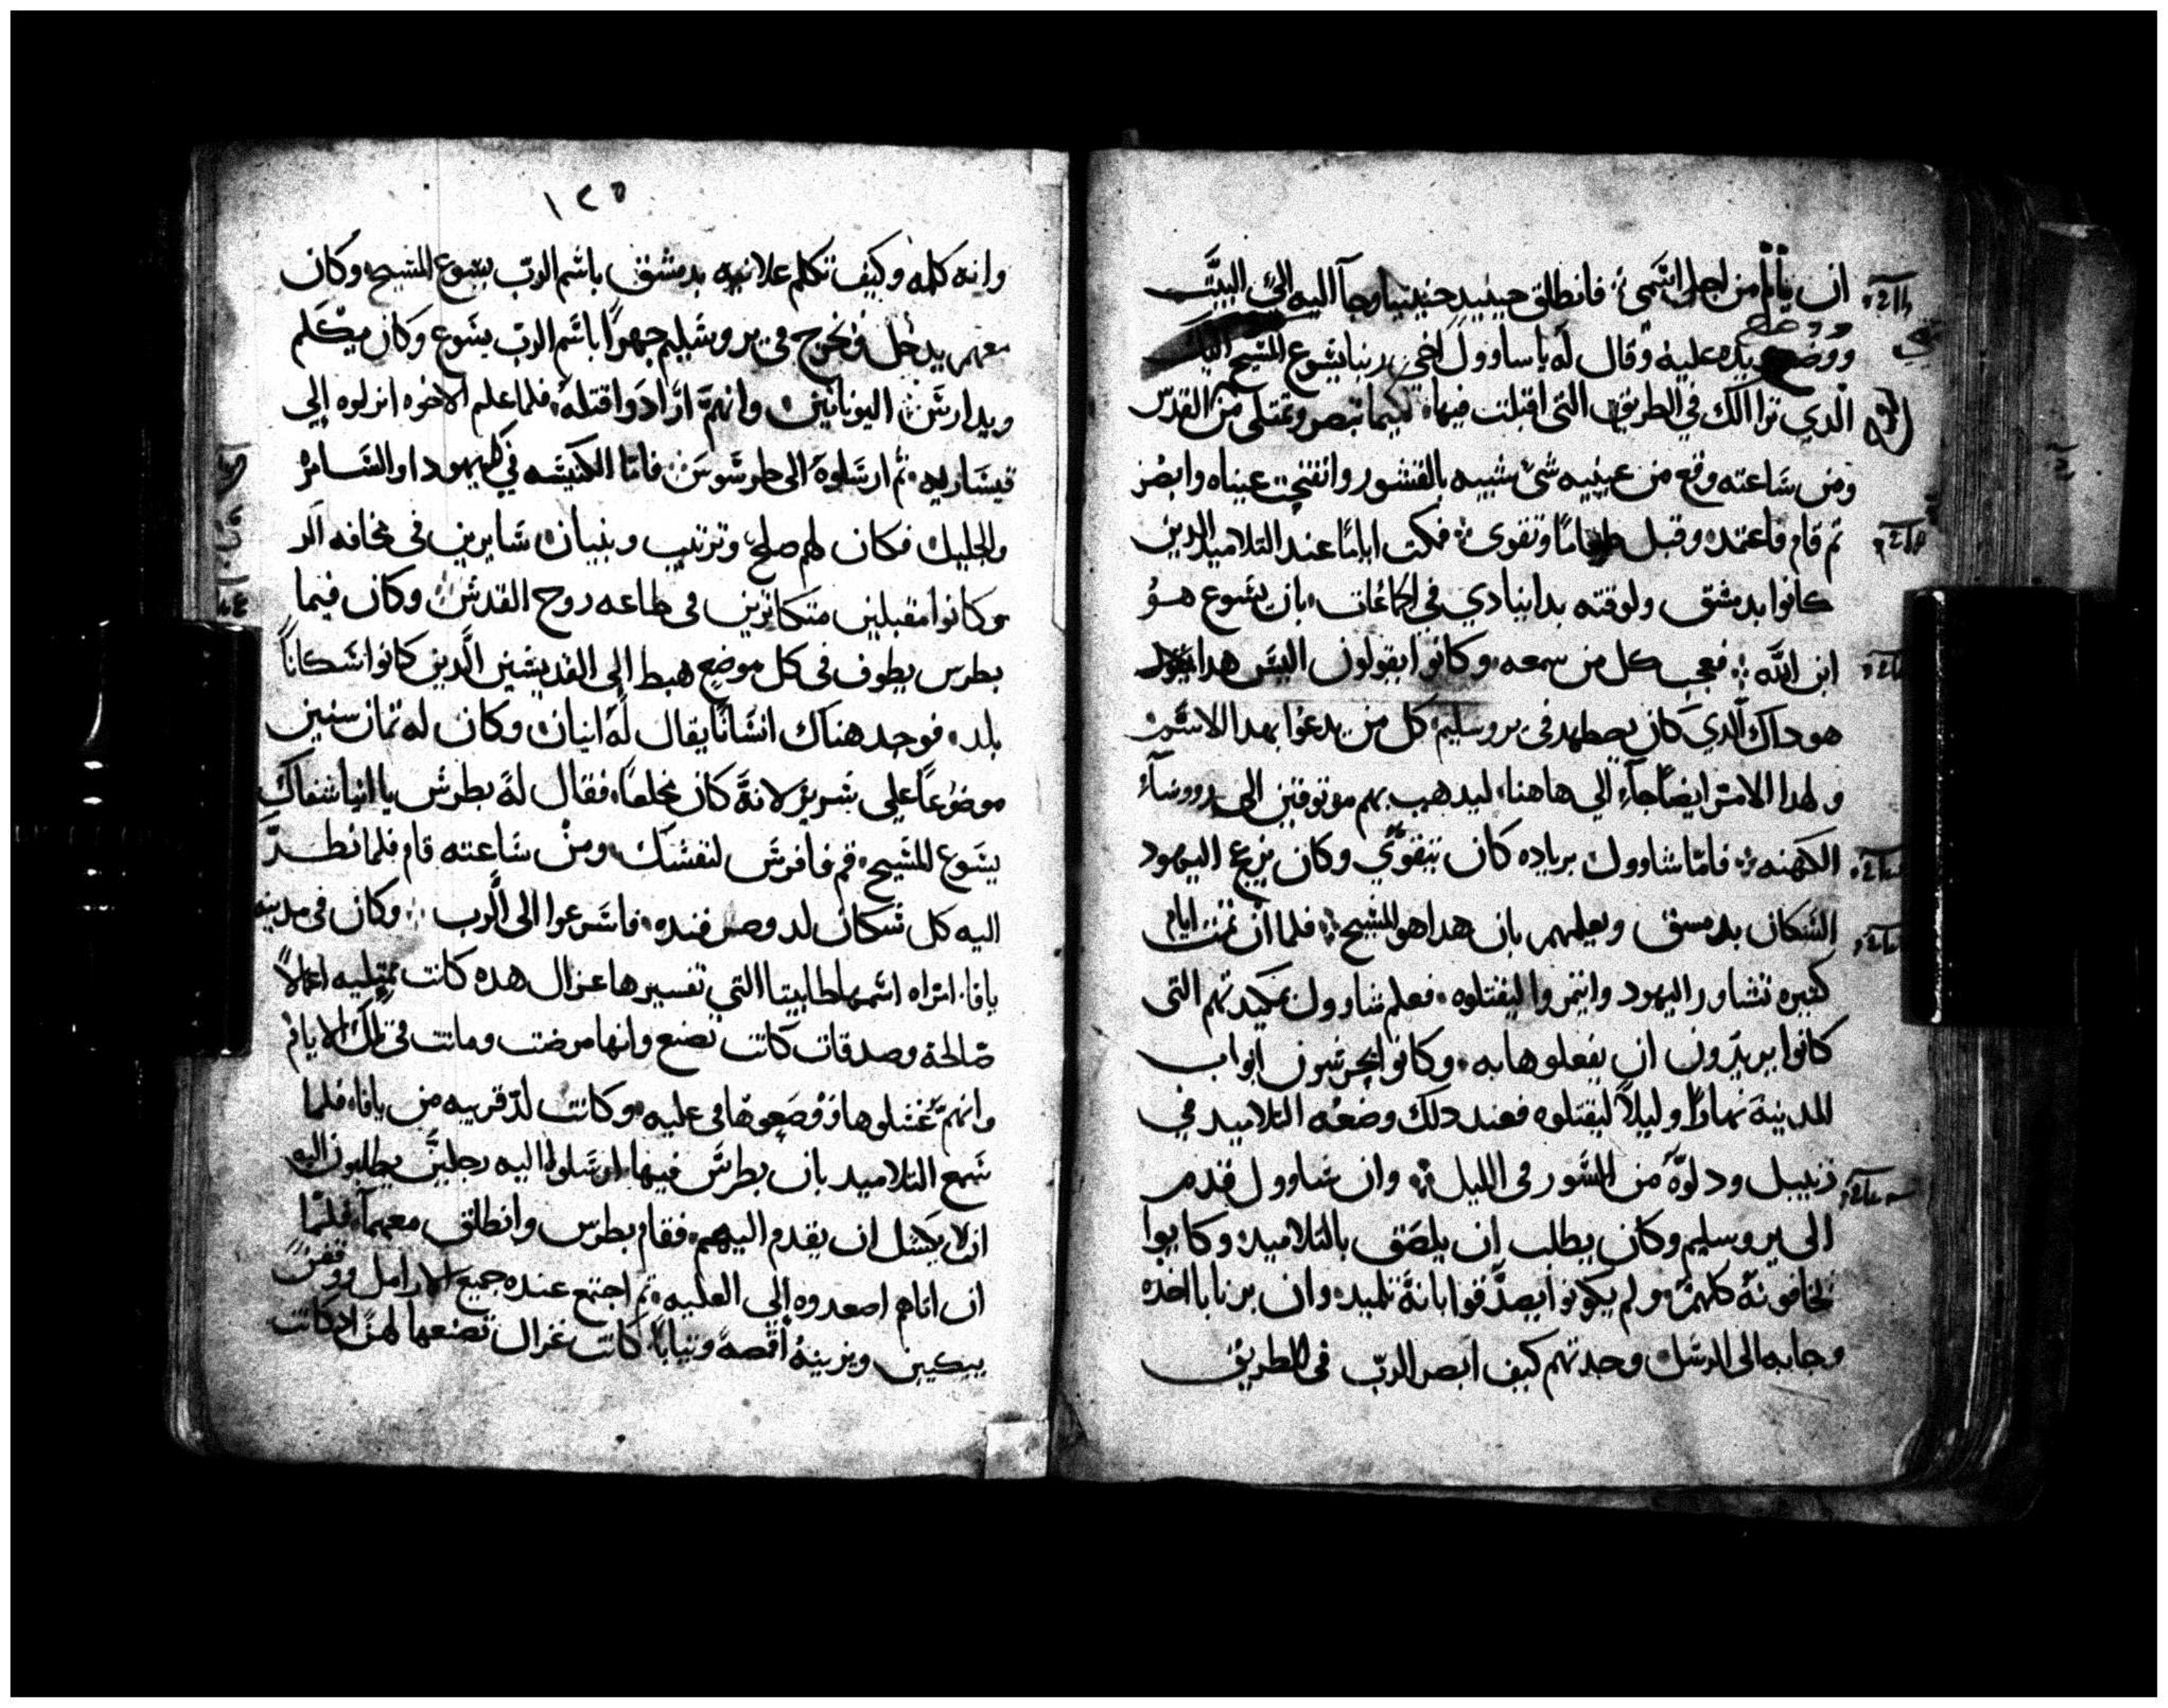 ان يألم من اجل اسمى فانطلق حينيد حنينيا وجآ اليه الي البيت
ووضع يده عليه وقال له ياساوول اخي ربنا يشوع المسيح
الدي ترا الك في الطريق التى اقبلت فيها لكيما تبصر وتمتلى من القدس
ومن ساعته وقع من عينيه شئ شبيه بالقشور وانفتحت عيناه وابصر
ثم قام فاعتمد وقبل طعاما وتقوى فمكت اياما عند التلاميد الدين
كانوا بدمشق ولوقته بدا ينادي في الجماعات بان يشوع هو
ابن الله فعجب كل من سمعه وكانوا يقولون اليس هدا
هو داك الدي كان يصطهد في يروسليم كل من يدعوا بهدا الاسم
ولهدا الامر ايضا جاء الي هاهنا ليدهب بهم موتوقين الى روسآء
الكهنه فاما شاوول بزياده كان يتقوي وكان يزعج اليهود
السكان بدمسق ويعلمهم بان هدا هو المسيح فلما ان تمت ايام
كتيره تشاور اليهود وايتمروا ليقتلوه فعلم شاوول بمكيدتهم التى
كانوا يريدون ان يفعلوها به وكانوا يحرسون ابواب
المدينة نهارا وليلا ليقتلوه فعند دلك وضعه التلاميد في
زنبيل ودلوه من السور في الليل وان شاوول قدم
الى يروسليم وكان يطلب ان يلصق بالتلاميد وكانوا
يخافونه كلهم ولم يكونوا يصدقوا بانه تلميد وان برنابا اخده
وجابه الى الرسل وحدتهم كيف ابصر الرب في الطريق
١٢٥
وانه كلمه وكيف تكلم علانيه بدمشق باسم الرب يشوع المسيح وكان
معهم يدخل ويخرج في يروشليم جهرا باسم الرب يشوع وكان يتكلم
ويدارس اليونانين وانهم ارادوا قتله فلما علم الاخوه انزلوه إلي
قيساريه ثم ارسلوه الى طرسوس فاما الكنيسه في كل يهودا والسامره
والجليل فكان لهم صلح وترتيب وبنيان سايرين في مخافه الر
وكانوا مقبلين متكاترين في طاعه روح القدس وكان فيما
بطرس يطوف في كل موضع هبط إلى القديسين الدين كانوا سكانا
بلد فوجد هناك انسانا يقال له انيان وكان له تمان سنين
موضوعا على سرير لانه كان مخلعا فقال له بطرس يا انيا شفاك
يشوع المسيح قم فافرش لنفسك ومن ساعته قام فلما نظر
اليه كل سكان لد وصرفنده فاسرعوا الى الرب وكان في مدينه
يافا امراه اسمها طابيتا التي تفسيرها غزال هده كانت ممتليه اعمالا
صالحة وصدقات كانت تصنع وانها مرضت وماتت في تلك الايام
وانهم غسلوها ووضعوها في عليه وكانت لد قريبه من يافا فلما
سمع التلاميد بان بطرس فيها ارسلوا اليه رجلين يطلبون اليه
ان لا يكسل ان يقدم اليهم فقام بطرس وانطلق معهما فلما
ان اتاهم اصعدوه إلي العليه ثم اجتمع عنده جميع الارامل ووقفن
يبكين ويرينه اقمصه وتيابا كانت غزال تصنعها لهن اد كانت